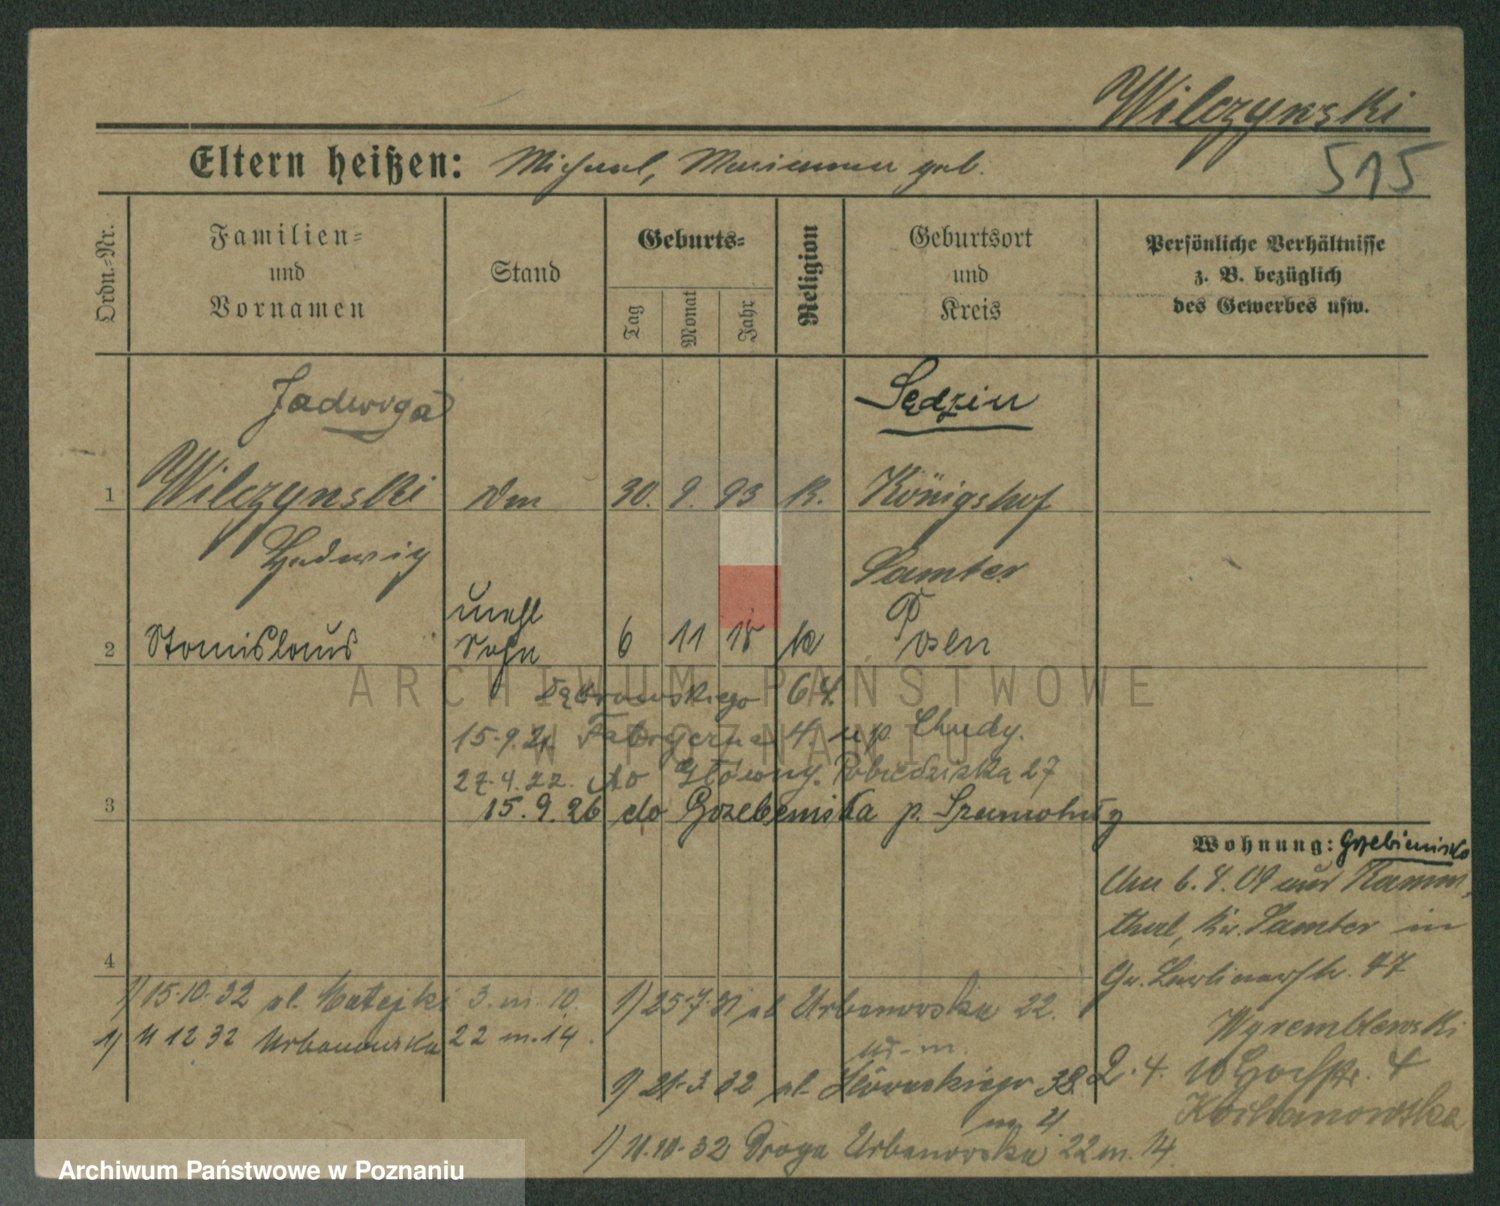 Wilczynski
515
Eltern heißen: Michael, Marianna geb.
Ordn.-Nr.
Familien- und Vornamen
Stand
Geburts-
Tag
Monat
Jahr
Religion
Geburtsort und Kreis
Persönliche Verhältnisse
z. B. bezüglich
des Gewerbes usw.
Jadwiga
Sędzin
1 Wilczynski 30. 9. 93 K. Königshof
Hedwig
Samter
unehl
2 Stanislaus Sohn 6 11 18 K Posen
Dąbrowskiego 64.
15.9.21. 4. u/p. Chudy.
27.4.22. do Główny. Pobiedziska 27
3
15.9.26 do Grzebieniska p. Szamotuły
Wohnung: Grzebienisko
Am 6. 4. 09 aus
Kr. Samter in
4
Gr. Berlinerstr. 47
1) 15.10.32 pl. Matejki 3. m. 10.
1) 25.7.31 Urbanowska 22.
Wyremblewski
1) 11 12 32 Urbanowska 22 m. 14.
2. 4. 10 Hochstr. 4
1) 21.3.32 Słowackiego 38.
m 4
1) 11.10.32 Droga Urbanowska 22 m. 14.
ARCHIWUM PAŃSTWOWE
W POZNANIU
Archiwum Państwowe w Poznaniu